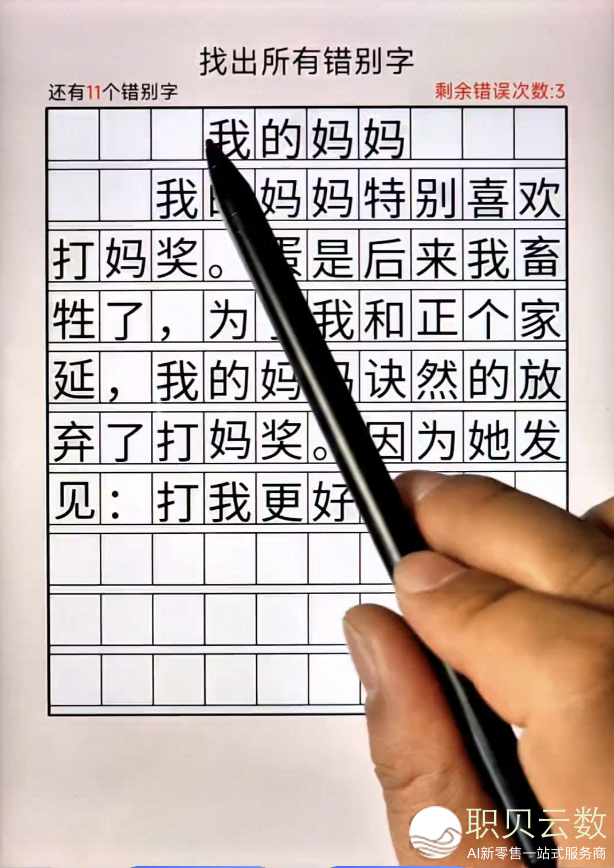 找出所有错别字
还有11个错别字
剩余错误次数:3
我的妈妈
我 妈妈特别喜欢
打妈奖。 是后来我畜
牲了，为 我和正个家
延，我的妈 诀然的放
弃了打妈奖。因为她发
见：打我更好
职贝云数
AI新零售一站式服务商